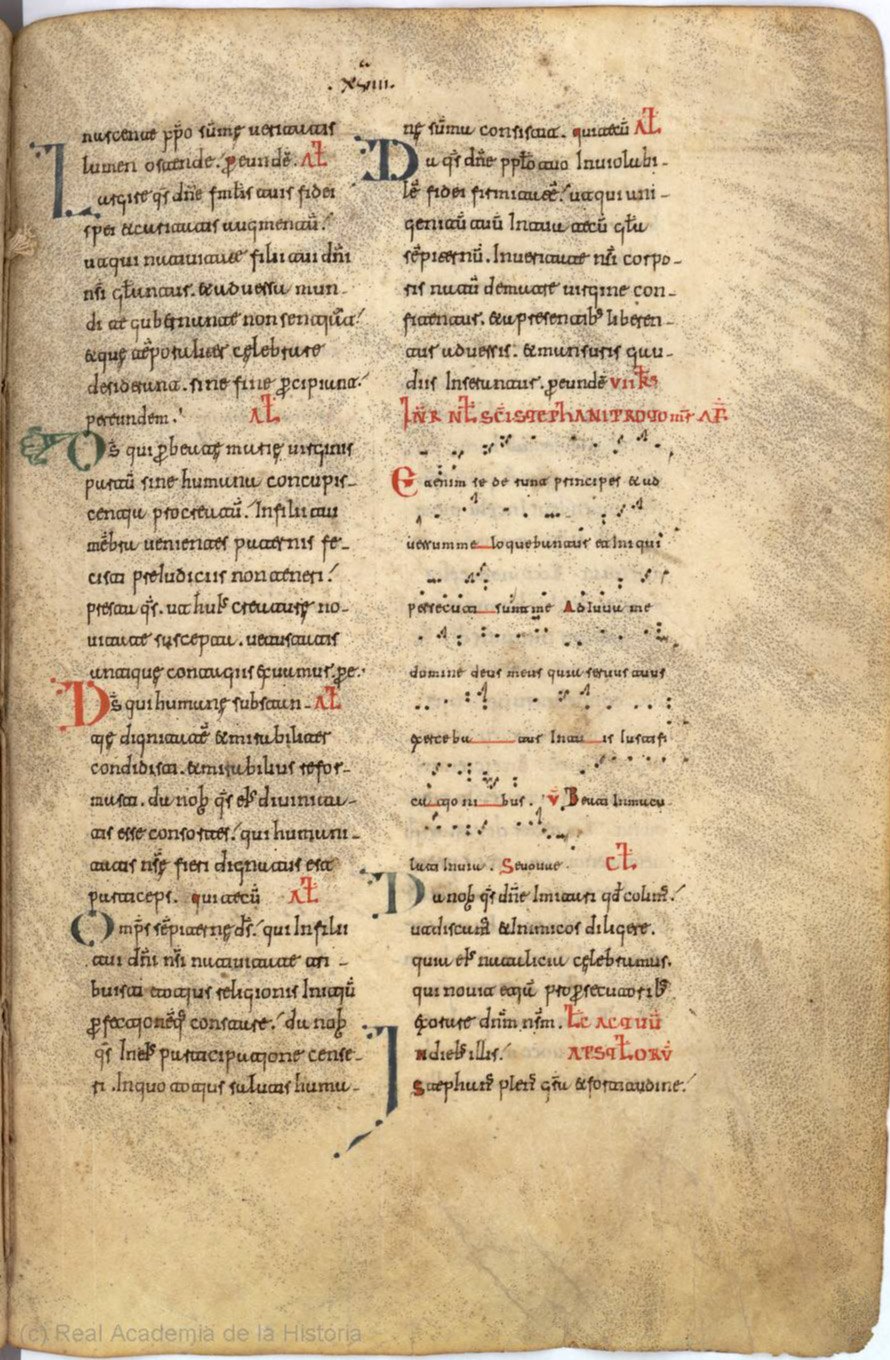 .xviiii.
nascente ppo sūmę ueritatis
lumen ostende. p eundē. AŁ
Largire qs dn̄e fmłis tuis fidei
spei et caritatis augmentū.
ut aqui natiuitate filii tui dn̄i
nr̄i głantur. et aduersa mun-
di te gubernante non sentiāt.
et quę tēporaliter cęlebrare
desiderant. sine fine p̄cipiant.
per eundem. AŁ
Ds qui p beatę marię uirginis
partū sine humana concupis-
centia procreatū. In filii tui
mēbra uenientes paternis fe-
cisti preiudiciis non teneri.
presta qs. ut huiꝰ creaturę no-
uitate suscepta. uetustatis
antiquę contagiis exuamus. pe.
Ds qui humanę substan- AŁ
tię dignitatē et mirabiliter
condidisti. et mirabilius refor-
masti. da nobꝫ qs eiꝰ diuinita-
tis esse consortes. qui humani-
tatis nr̄ę fieri dignatus est
particeps. qui tecū AŁ
Omps sēpiternę ds. qui In filii
tui dn̄i nr̄i natiuitate tri-
buisti totius religionis Initiū
p̄fectionēq constare. da nobꝫ
qs In eiꝰ participatione cense-
ri. In quo totius salutis huma-
nę sūma consistit. qui tecū AŁ
Da qs dn̄e ppło tuo Inuiolabi-
lē fidei firmitatē. ut a qui uni-
genitū tuū In tua tecū głia
sēpiternū. In ueritate nr̄i corpo-
ris natū de matre uirgine con-
fitentur. et a presentibꝰ liberen-
tur aduersis. et mansuris gau-
diis Inserantur. p eundē vii kł
IN̄R NŁ SC̄I STEPHANI PROTO mr̄ AP̄.
Etenim sederunt principes et ad
uersum me loquebantur et Iniqui
persecuti sunt me Adiuua me
domine deus meus quia seruus tuus
exerceba tur In tu is Iustifi
ca tio ni bus. v̄ Beati Inmacu
lati Inuia. Seuouae. CŁ
Da nobꝫ qs dn̄e Imitari qd colimꝰ.
ut discamꝰ et Inimicos diligere.
quia eiꝰ natalicia cęlebramus.
qui nouit etiā pro p̄secutoribꝰ
exorare dn̄m nr̄m. Łc ACTUŪ
In diebꝰ illis. APSTŁORV̄
Stephanꝰ plenꝰ grā et fortitudine.
(c) Real Academia de la Historia